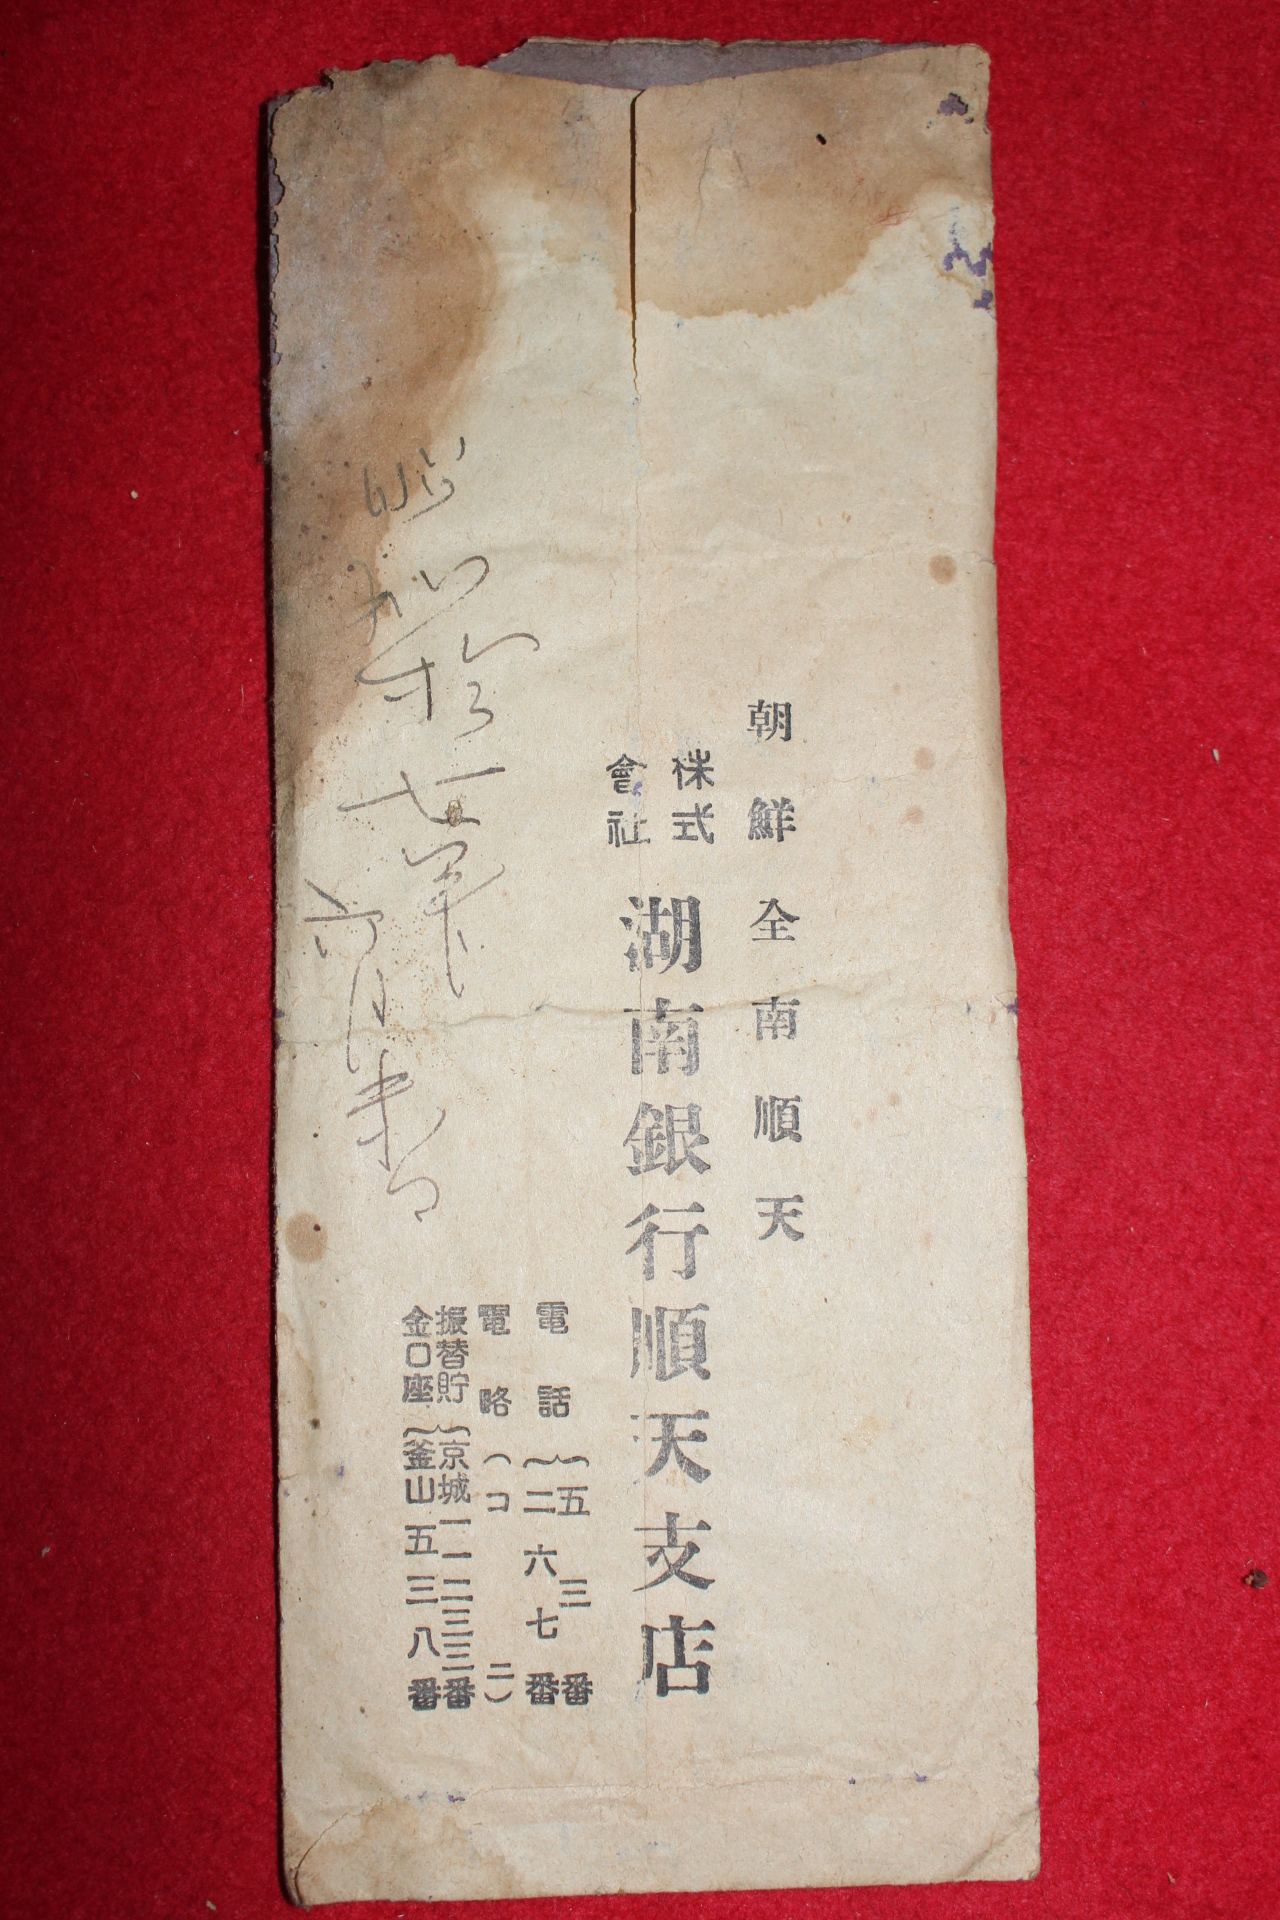 朝鮮全南順天
株式
會社
湖南銀行順天支店
電話{五三番
二六七番
電略(コ二)
振替貯
金口座{京城一一二三三番
釜山五三八番
昭和拾七年
六月